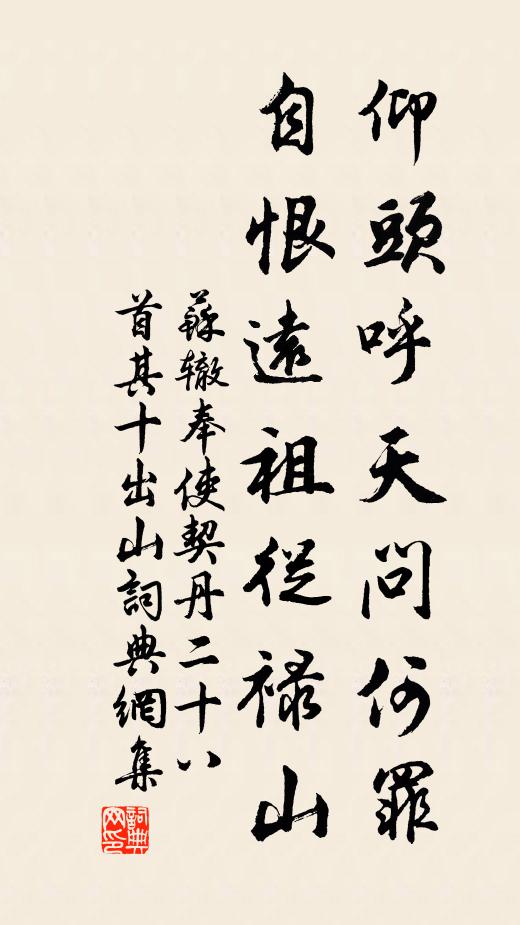 仰頭呼天問何罪
自恨遠祖從禄山
蘇辙奉使契丹二十八
首其十出山詞典網集
詞典
网印